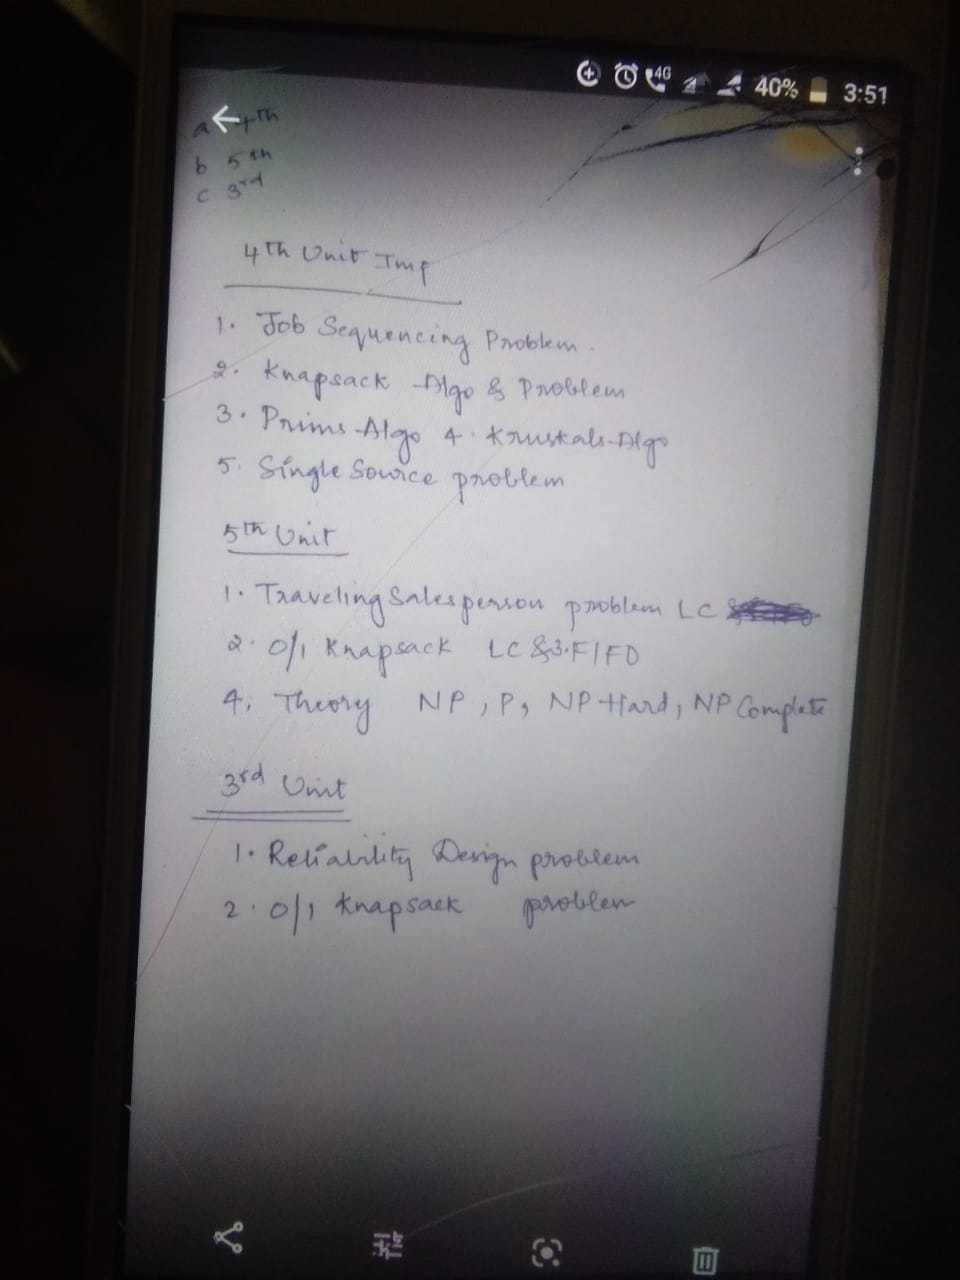 4G 40% 3:51
a 4th
b 5th
c 3rd
4th Unit Imp
1. Job Sequencing Problem.
2. Knapsack Algo & Problem
3. Prims Algo 4. Kruskals Algo
5. Single Source problem
5th Unit
1. Traveling Sales person problem LC
2. 0/1 Knapsack LC & 3. FIFO
4. Theory NP, P, NP Hard, NP Complete
3rd Unit
1. Reliability Design problem
2. 0/1 Knapsack problem